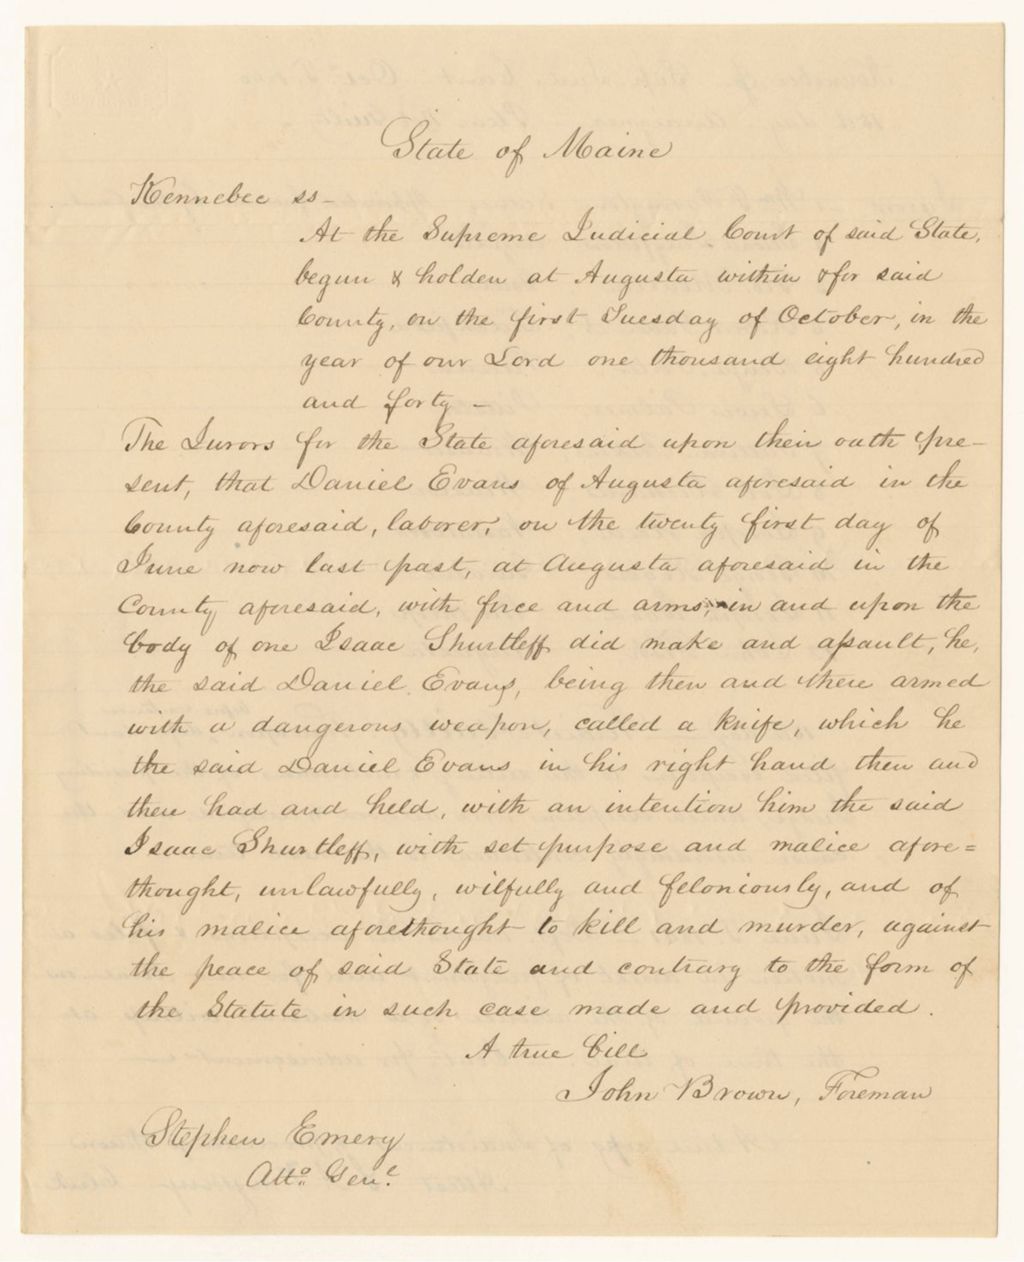 State of Maine
Kennebec ss -
At the Supreme Judicial Court of said State,
begun & holden at Augusta within & for said
County, on the first Tuesday of October, in the
year of our Lord one thousand eight hundred
and forty -
The Jurors for the State aforesaid upon their oath pre-
sent, that Daniel Evans of Augusta aforesaid in the
County aforesaid, laborer, on the twenty first day of
June now last past, at Augusta aforesaid in the
County aforesaid, with force and arms, in and upon the
body of one Isaac Shurtleff did make and assault, he,
the said Daniel Evans, being then and there armed
with a dangerous weapon, called a knife, which he
the said Daniel Evans in his right hand then and
there had and held, with an intention him the said
Isaac Shurtleff, with set purpose and malice afore=
thought, unlawfully, wilfully and feloniously, and of
his malice aforethought to kill and murder, against
the peace of said State and contrary to the form of
the Statute in such case made and provided.
A true bill
John Brown, Foreman
Stephen Emery
Atto. Genl.